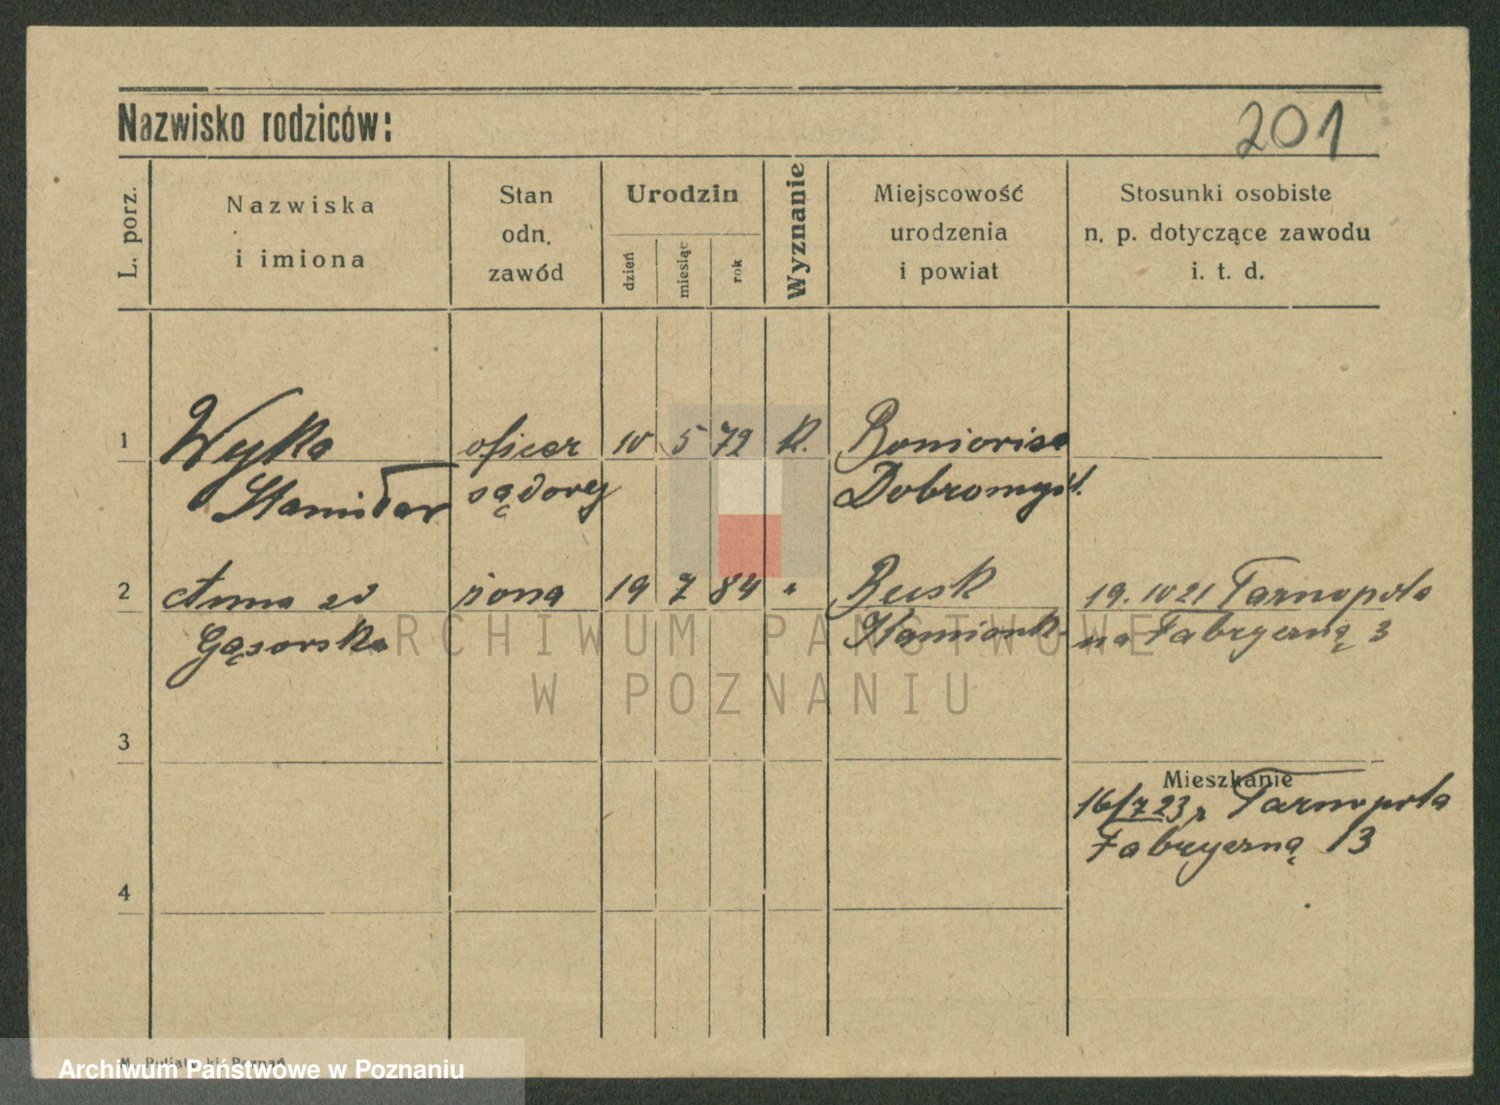 Nazwisko rodziców:
201
L. porz.
Nazwiska
i imiona
Stan
odn.
zawód
Urodzin
dzień
miesiąc
rok
Wyznanie
Miejscowość
urodzenia
i powiat
Stosunki osobiste
n. p. dotyczące zawodu
i. t. d.
1 Wyka oficer 10 5 72 k.
Stanisław sądowy Dobromyśl.
2 Anna zd żona 19 7 84 " Busk 19. 10 21 Tarnopola
Gąsorska Kamionk na Fabryczną 3
3
Mieszkanie
16/7 23 z Tarnopola
Fabryczną 13
4
ARCHIWUM PAŃSTWOWE
W POZNANIU
Poznań
Archiwum Państwowe w Poznaniu